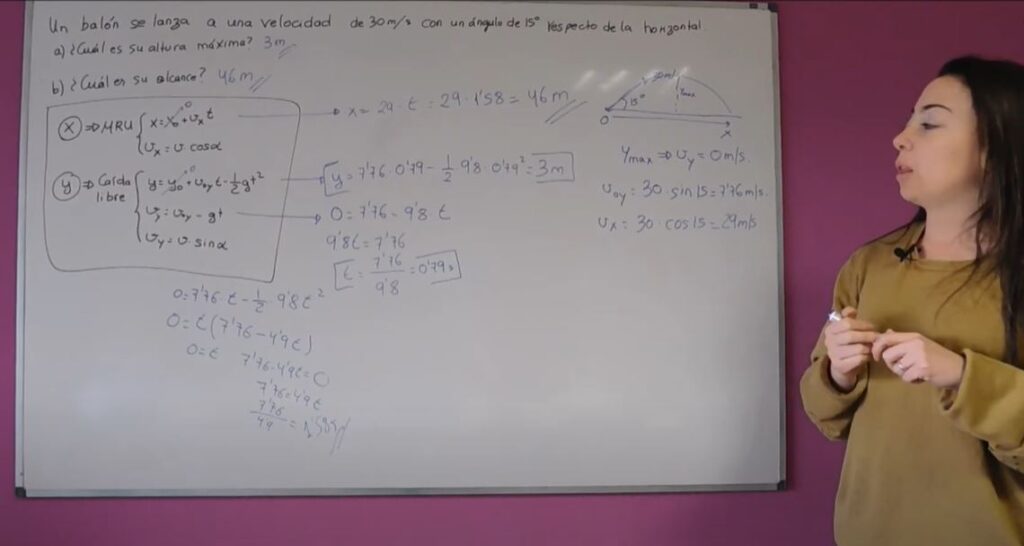 Un balón se lanza a una velocidad de 30 m/s con un ángulo de 15° respecto de la horizontal.
a) ¿Cuál es su altura máxima? 3m
b) ¿Cuál es su alcance? 46m
X ⇒ MRU { x = x₀ + vₓ t
vₓ = v · cosα
→ x = 29 · t = 29 · 1'58 = 46m
y ⇒ Caída libre { y = y₀ + v₀y t - 1/2 gt²
vy = v₀y - gt
vy = v · sinα
y = 7'76 · 0'79 - 1/2 9'8 · 0'79² = 3m
0 = 7'76 - 9'8 t
9'8t = 7'76
t = 7'76/9'8 = 0'79s
0 = 7'76 · t - 1/2 · 9'8t²
0 = t (7'76 - 4'9t)
0 = t 7'76 - 4'9t = 0
7'76 = 4'9t
7'76/4'9 = 1'58s
30m/s
15°
Ymax
0
x
Ymax ⇒ vy = 0m/s.
v₀y = 30 · sin15 = 7'76m/s.
vₓ = 30 · cos15 = 29m/s